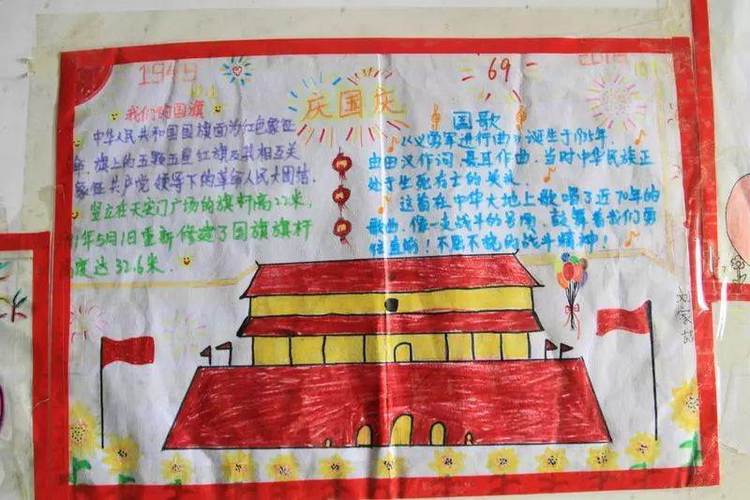 1949
69
2018
庆国庆
我们的国旗
中华人民共和国国旗面为红色象征
旗上的五颗五星红旗及其相互关
象征共产党领导下的革命人民大团结.
竖立在天安门广场的旗杆高22米,
1年5月1日重新修建了国旗旗杆
度达32.6米.
国歌
《义勇军进行曲》诞生于19 年,
由田汉作词,聂耳作曲.当时中华民族正
处于生死存亡的关头.
这首在中华大地上歌唱了近70年的
歌曲,像一支战斗的号角,鼓舞着我们勇
往直前!不屈不挠的战斗精神!